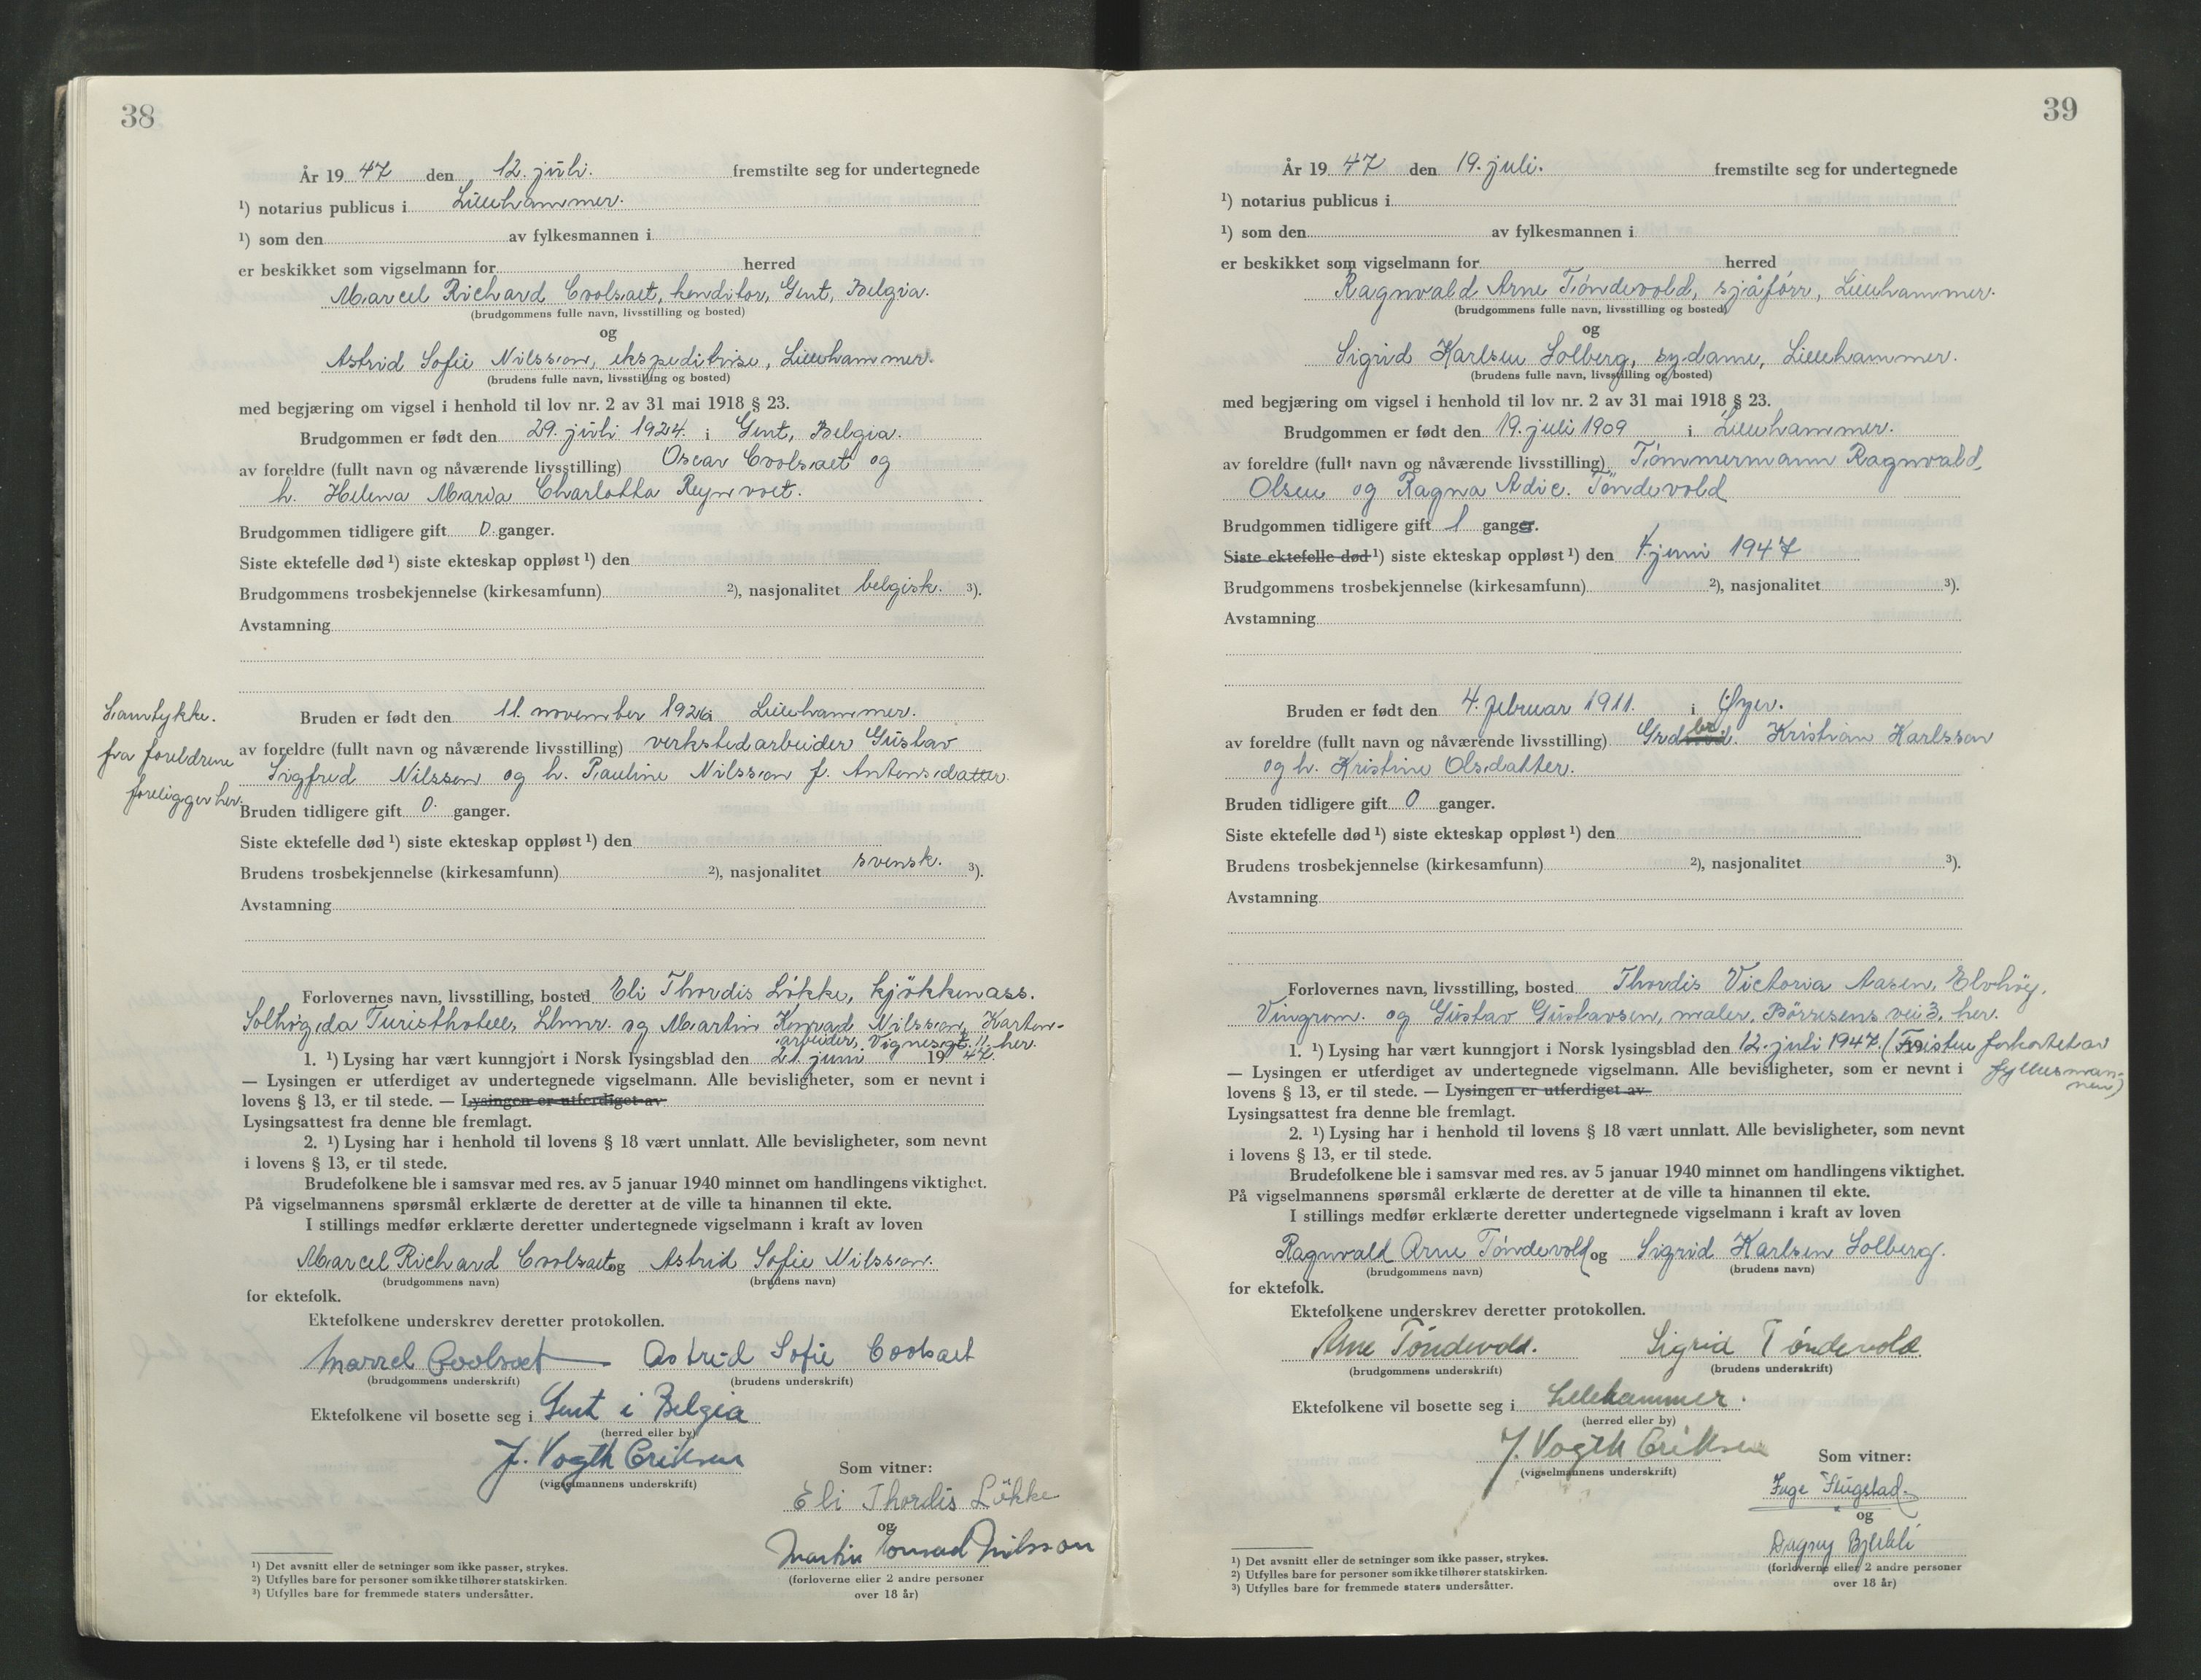 38
År 19 47 den 12. juli. fremstilte seg for undertegnede
¹) notarius publicus i Lillehammer.
¹) som den av fylkesmannen i
er beskikket som vigselmann for herred
Marcel Richard Coolsaet, konditor, Gent, Belgia.
(brudgommens fulle navn, livsstilling og bosted)
og
Astrid Sofie Nilsson, ekspeditrise, Lillehammer.
(brudens fulle navn, livsstilling og bosted)
med begjæring om vigsel i henhold til lov nr. 2 av 31 mai 1918 § 23.
Brudgommen er født den 29. juli 1924. i Gent, Belgia.
av foreldre (fullt navn og nåværende livsstilling) Oscar Coolsaet og
h. Helena Maria Charlotta Reynvoet.
Brudgommen tidligere gift 0 ganger.
Siste ektefelle død ¹) siste ekteskap oppløst ¹) den
Brudgommens trosbekjennelse (kirkesamfunn) ²), nasjonalitet belgisk. ³).
Avstamning
Samtykke.
fra foreldrene
foreligger her.
Bruden er født den 11. november 1926 i Lillehammer.
av foreldre (fullt navn og nåværende livsstilling) verkstedarbeider Gustav
Sigfred Nilsson og h. Pauline Nilsson f. Antonsdatter.
Bruden tidligere gift 0. ganger.
Siste ektefelle død ¹) siste ekteskap oppløst ¹) den
Brudens trosbekjennelse (kirkesamfunn) ²), nasjonalitet svensk. ³).
Avstamning
Forlovernes navn, livsstilling, bosted Eli Thordis Lökke, kjökkenass.
Turisthotell, Lhmr. og Martin Konrad Nilsson, Karton-
arbeider, Vignesgt. 11, her.
1. ¹) Lysing har vært kunngjort i Norsk lysingsblad den 21. juni 19 47.
— Lysingen er utferdiget av undertegnede vigselmann. Alle bevisligheter, som er nevnt i
lovens § 13, er til stede. — Lysingen er utferdiget av
Lysingsattest fra denne ble fremlagt.
2. ¹) Lysing har i henhold til lovens § 18 vært unnlatt. Alle bevisligheter, som nevnt
i lovens § 13, er til stede.
Brudefolkene ble i samsvar med res. av 5 januar 1940 minnet om handlingens viktighet.
På vigselmannens spørsmål erklærte de deretter at de ville ta hinannen til ekte.
I stillings medfør erklærte deretter undertegnede vigselmann i kraft av loven
Marcel Richard Coolsaet og Astrid Sofie Nilsson.
(brudgommens navn) (brudens navn)
for ektefolk.
Ektefolkene underskrev deretter protokollen.
Marcel Coolsaet Astrid Sofie Coolsaet
(brudgommens underskrift) (brudens underskrift)
Ektefolkene vil bosette seg i Gent i Belgia
(herred eller by)
J. Vogth Eriksen
(vigselmannens underskrift)
Som vitner:
Eli Thordis Lökke
og
Martin Konrad Nilsson
(forloverne eller 2 andre personer
over 18 år)
¹) Det avsnitt eller de setninger som ikke passer, strykes.
²) Utfylles bare for personer som ikke tilhører statskirken.
³) Utfylles bare for fremmede staters undersåtter.
39
År 19 47 den 19. juli. fremstilte seg for undertegnede
¹) notarius publicus i
¹) som den av fylkesmannen i
er beskikket som vigselmann for herred
Ragnvald Arne Töndevold, sjåförr, Lillehammer.
(brudgommens fulle navn, livsstilling og bosted)
og
Sigrid Karlsen Solberg, sydame, Lillehammer.
(brudens fulle navn, livsstilling og bosted)
med begjæring om vigsel i henhold til lov nr. 2 av 31 mai 1918 § 23.
Brudgommen er født den 19. juli 1909 i Lillehammer.
av foreldre (fullt navn og nåværende livsstilling) Tömmermann Ragnvald
Olsen og Ragna Töndevold
Brudgommen tidligere gift 1 gang.
Siste ektefelle død ¹) siste ekteskap oppløst ¹) den 4. juni 1947
Brudgommens trosbekjennelse (kirkesamfunn) ²), nasjonalitet ³).
Avstamning
Bruden er født den 4. februar 1911. i Øyer.
av foreldre (fullt navn og nåværende livsstilling) Kristian Karlsson
og h. Kristine Olsdatter.
Bruden tidligere gift 0 ganger.
Siste ektefelle død ¹) siste ekteskap oppløst ¹) den
Brudens trosbekjennelse (kirkesamfunn) ²), nasjonalitet ³).
Avstamning
Forlovernes navn, livsstilling, bosted Thordis Victoria Aasen, Elvhöy,
Vingrom. og Gustav Gustavsen, maler, Börresens vei 3, her.
1. ¹) Lysing har vært kunngjort i Norsk lysingsblad den 12. juli 1947. (Fristen forkortet av
fylkesman-
nen)
— Lysingen er utferdiget av undertegnede vigselmann. Alle bevisligheter, som er nevnt i
lovens § 13, er til stede. — Lysingen er utferdiget av
Lysingsattest fra denne ble fremlagt.
2. ¹) Lysing har i henhold til lovens § 18 vært unnlatt. Alle bevisligheter, som nevnt
i lovens § 13, er til stede.
Brudefolkene ble i samsvar med res. av 5 januar 1940 minnet om handlingens viktighet.
På vigselmannens spørsmål erklærte de deretter at de ville ta hinannen til ekte.
I stillings medfør erklærte deretter undertegnede vigselmann i kraft av loven
Ragnvald Arne Töndevold og Sigrid Karlsen Solberg.
(brudgommens navn) (brudens navn)
for ektefolk.
Ektefolkene underskrev deretter protokollen.
Arne Töndevold. Sigrid Töndevold
(brudgommens underskrift) (brudens underskrift)
Ektefolkene vil bosette seg i Lillehammer.
(herred eller by)
J. Vogth Eriksen
(vigselmannens underskrift)
Som vitner:
Inge Flugstad.
og
Dagny
(forloverne eller 2 andre personer
over 18 år)
¹) Det avsnitt eller de setninger som ikke passer, strykes.
²) Utfylles bare for personer som ikke tilhører statskirken.
³) Utfylles bare for fremmede staters undersåtter.